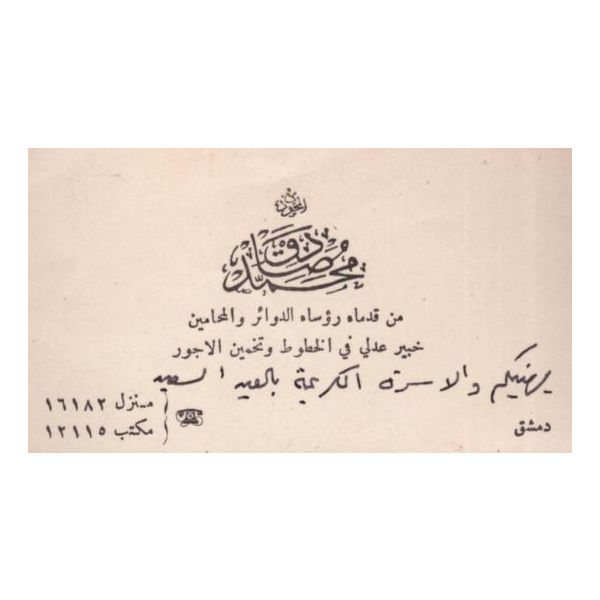 محمد صادق
من قدماء رؤساء الدوائر والمحامين
خبير عدلي في الخطوط وتخمين الاجور
يهنيكم والاسرة الكريمة بالعيد السعيد
منزل ١٦١٨٢
دمشق مكتب ١٢١١٥